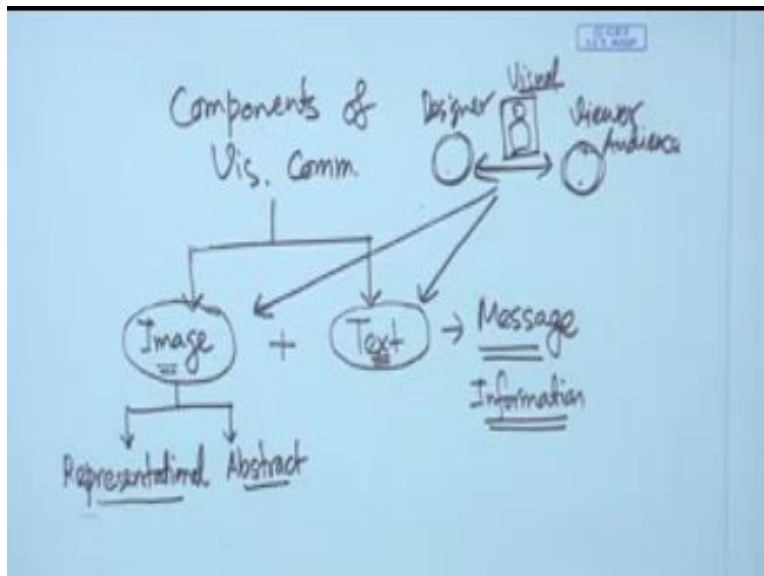 Components of
Vis. Comm.
Designer
Visual
Viewer
Audience
Image + Text → Message
Information
Representational Abstract